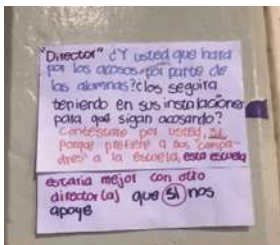 "Director" ¿Y usted que hara
por los acosos por parte de
los alumnas? ¿los seguira
teniendo en sus instalaciones
para que sigan acosando?
Contestare por usted, SI,
porque prefiere a sus "compa-
dres" a la escuela, esta escuela
estaria mejor con otro
director(a) que SI nos
apoye